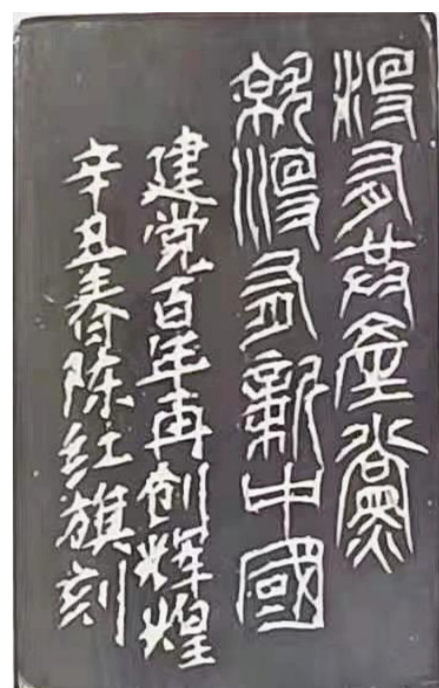 沒有共產黨
就沒有新中國
建党百年再创辉煌
辛丑春陈红旗刻